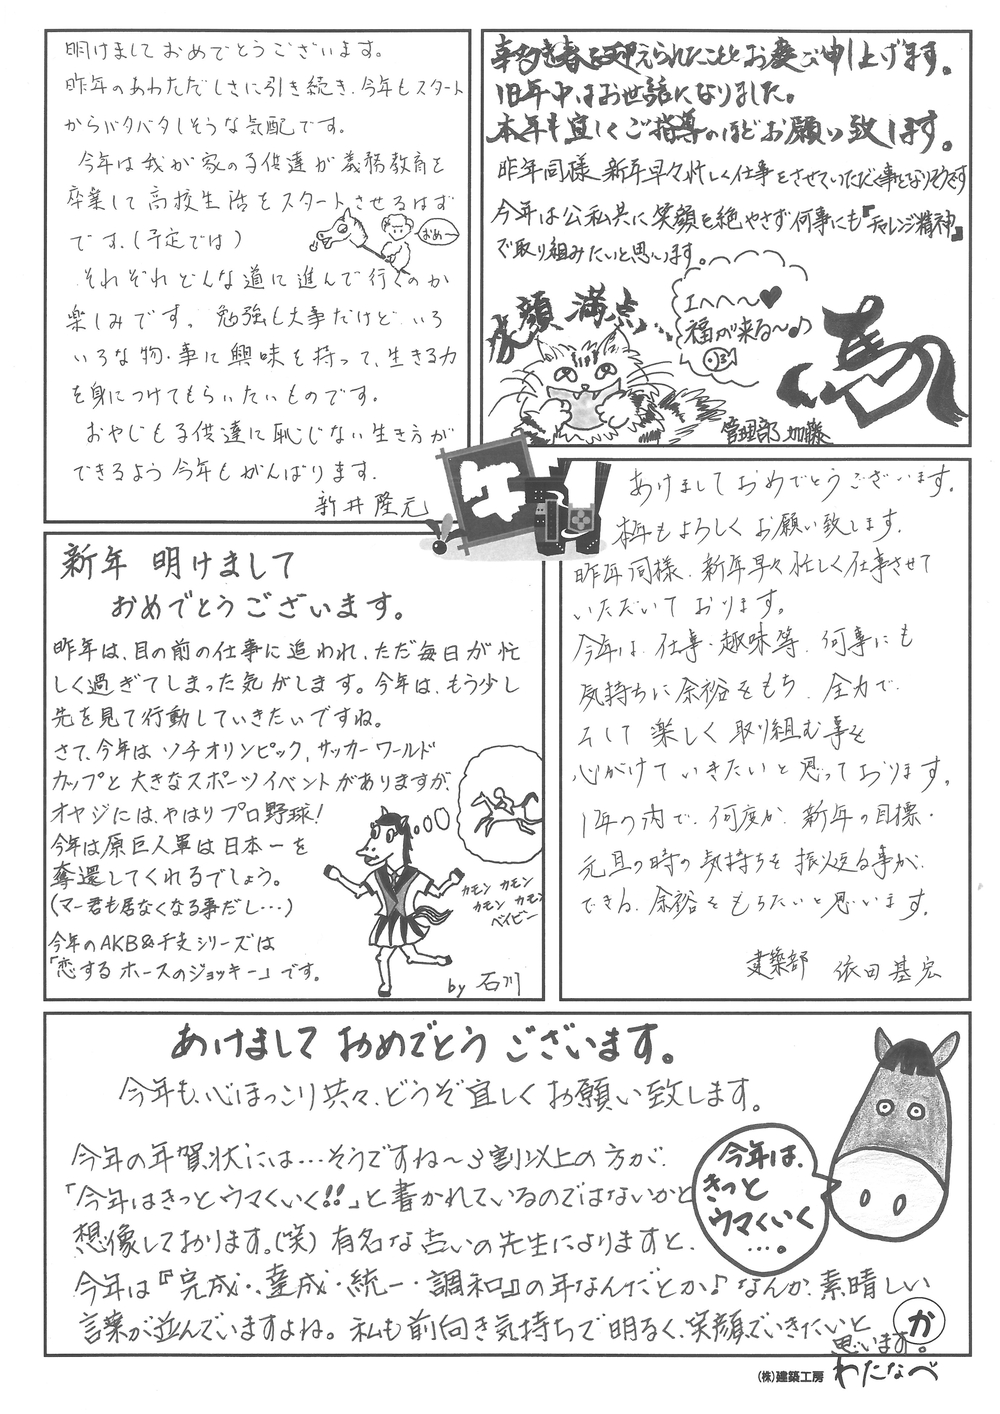 明けましておめでとうございます。
昨年のあわただしさに引き続き、今年もスタート
からバタバタしそうな気配です。
今年は我が家の子供達が義務教育を
卒業して高校生活をスタートさせるはず
です。(予定では)
おめ〜
それぞれどんな道に進んで行くのか
楽しみです。勉強も大事だけど、いろ
いろな物・事に興味を持って、生きる力
を身につけてもらいたいものです。
おやじも子供達に恥じない生き方が
できるよう今年もがんばります。
新井隆元
幸多き春を迎えられたこととお慶び申し上げます。
旧年中はお世話になりました。
本年も宜しくご指導のほどお願い致します。
昨年同様、新年早々忙しく仕事をさせていただく事となりそうです
今年は公私共に笑顔を絶やさず何事にも『チャレンジ精神』
で取り組みたいと思います。
笑顔満点
エヘヘ〜♥
福が来る〜♪
馬
管理部 加藤
午
新年 明けまして
おめでとうございます。
昨年は、目の前の仕事に追われ、ただ毎日が忙
しく過ぎてしまった気がします。今年は、もう少し
先を見て行動していきたいですね。
さて、今年は ソチオリンピック、サッカーワールド
カップと大きなスポーツイベントがありますが、
オヤジには、やはりプロ野球!
今年は原巨人軍は日本一を
奪還してくれるでしょう。
(マー君も居なくなる事だし…)
今年のAKB&干支シリーズは
「恋するホースのジョッキー」です。
カモン カモン
カモン カモン
ベイビー
by 石川
あけましておめでとうございます。
本年もよろしくお願い致します。
昨年同様、新年早々忙しく仕事させて
いただいております。
今年は、仕事・趣味等、何事にも
気持ちに余裕をもち、全力で、
そして楽しく取り組む事を
心がけていきたいと思っております。
1年の内で、何度か、新年の目標・
元旦の時の気持ちを振り返る事が、
できる、余裕をもちたいと思います。
建築部 依田基宏
あけましておめでとうございます。
今年も、心ほっこり共々、どうぞ宜しくお願い致します。
今年の年賀状には…そうですね〜3割以上の方が、
「今年はきっとウマくいく!!」と書かれているのではないかと
想像しております。(笑) 有名な占いの先生によりますと、
今年は『完成・達成・統一・調和』の年なんだとか♪なんか、素晴しい
言葉が並んでいますよね。私も前向き気持ちで明るく、笑顔でいきたいと
思います。
今年は、
きっと
ウマくいく
…。
か
わたなべ
(株)建築工房